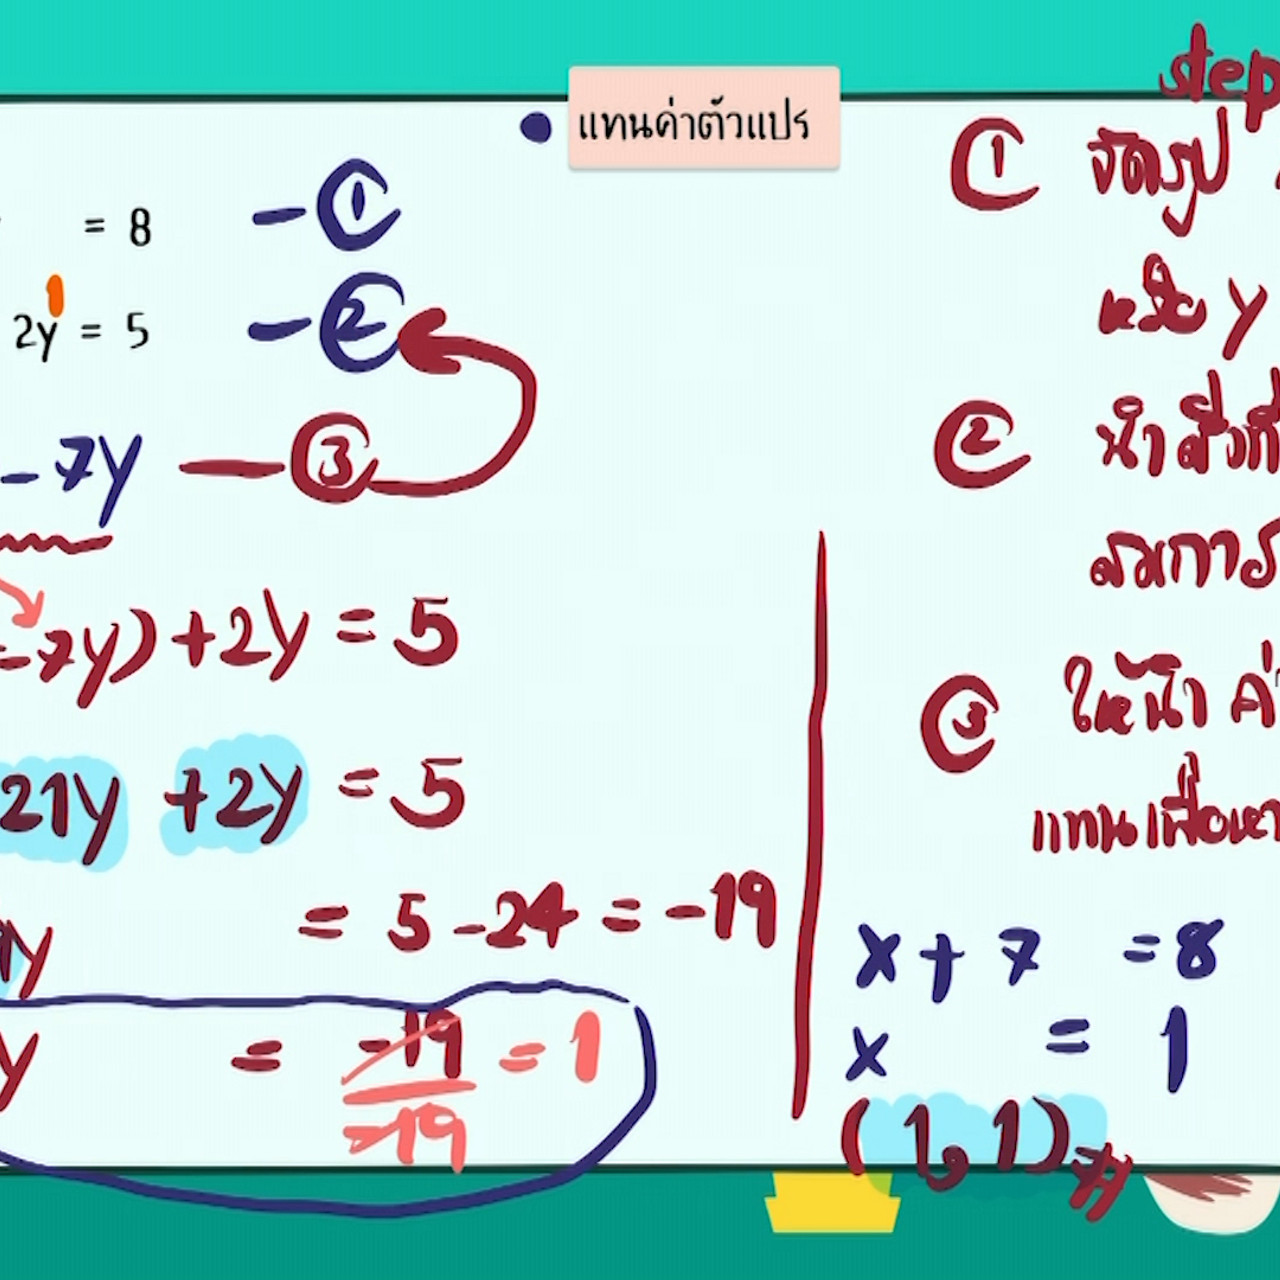 แทนค่าตัวแปร
= 8 - ①
2y = 5 - ②
- 7y — ③
-7y) + 2y = 5
21y + 2y = 5
= 5 - 24 = -19
y
y = -19/-19 = 1
step
① จัดรูป
หรือ y
② นำสิ่งที่
สมการ
③ ให้นำ ค่า
แทนเพื่อหา
x + 7 = 8
x = 1
(1, 1)